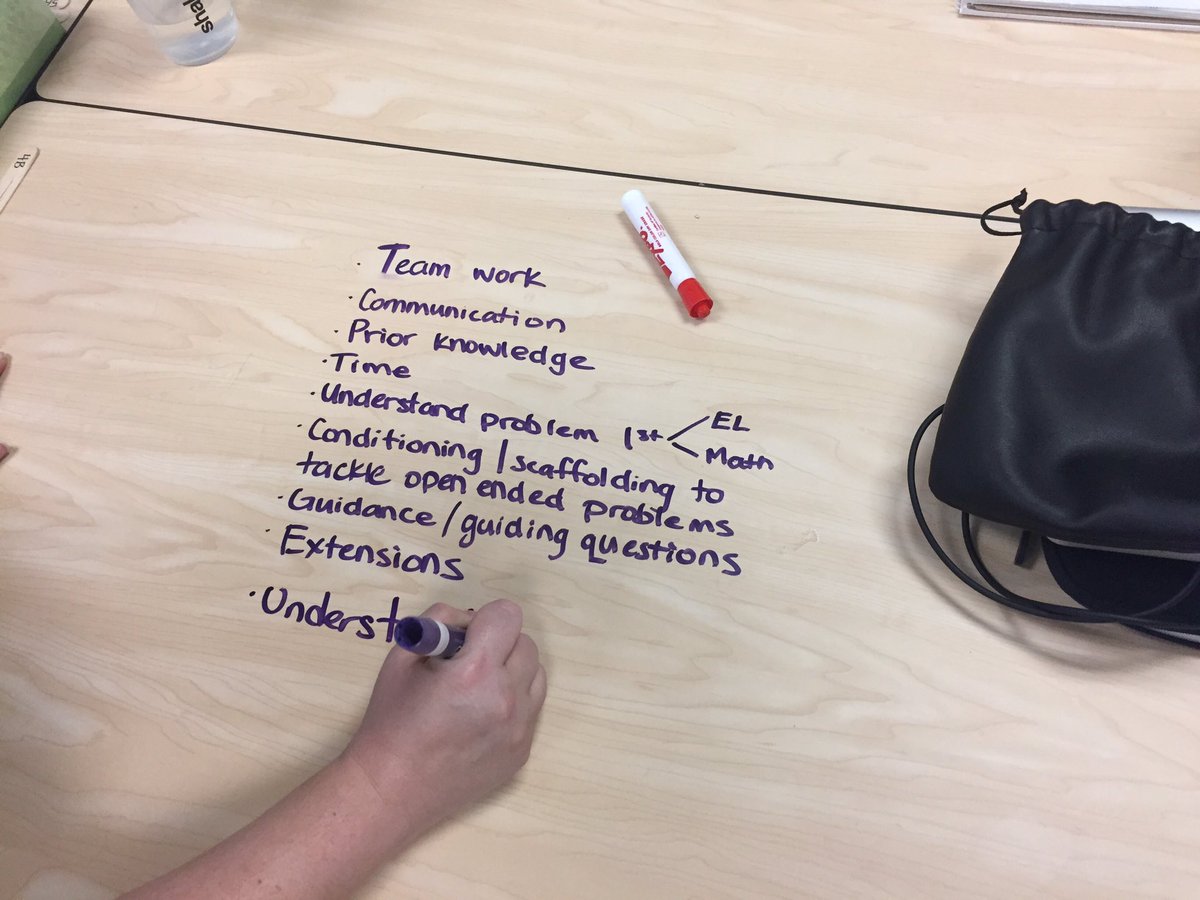 shak
4B
EXPO
· Team work
· Communication
· Prior knowledge
· Time
· Understand problem 1st < EL
Math
· Conditioning / scaffolding to
tackle open ended problems
· Guidance / guiding questions
· Extensions
· Underst